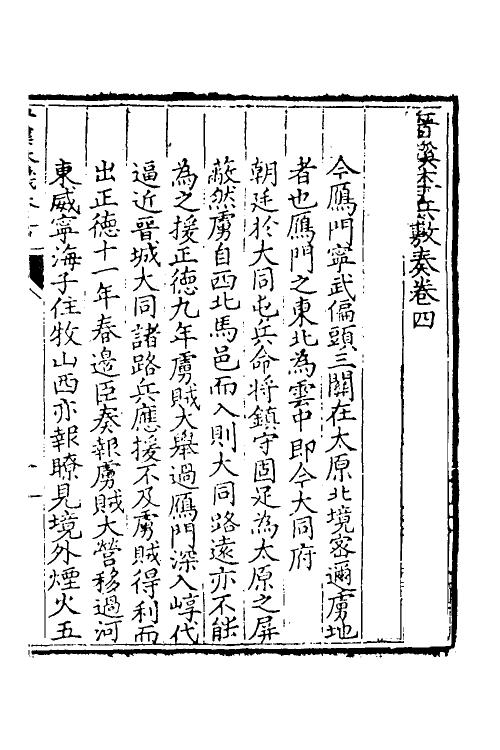 晉溪本兵敷奏卷四
今鴈門寧武偏頭三關在太原北境密邇虜地
者也鴈門之東北為雲中即今大同府
朝廷於大同屯兵命將鎮守固足為太原之屏
蔽然虜自西北馬邑而入則大同路遠亦不能
為之援正德九年虜賊大舉過鴈門深入崞代
逼近晉城大同諸路兵應援不及虜賊得利而
出正德十一年春邊臣奏報虜賊大營移過河
東威寧海子住牧山西亦報瞭見境外煙火五